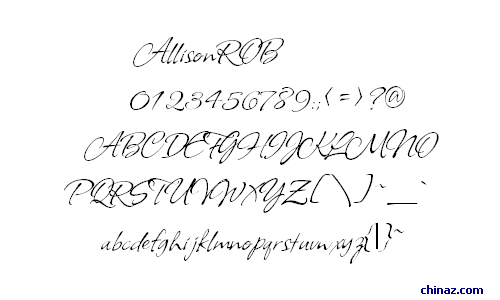 AllisonROB
0123456789:;<=>?@
ABCDEFGHIJKLMNO
PQRSTUVWXYZ[\]^_`
abcdefghijklmnopqrstuvwxyz{|}~
chinaz.com